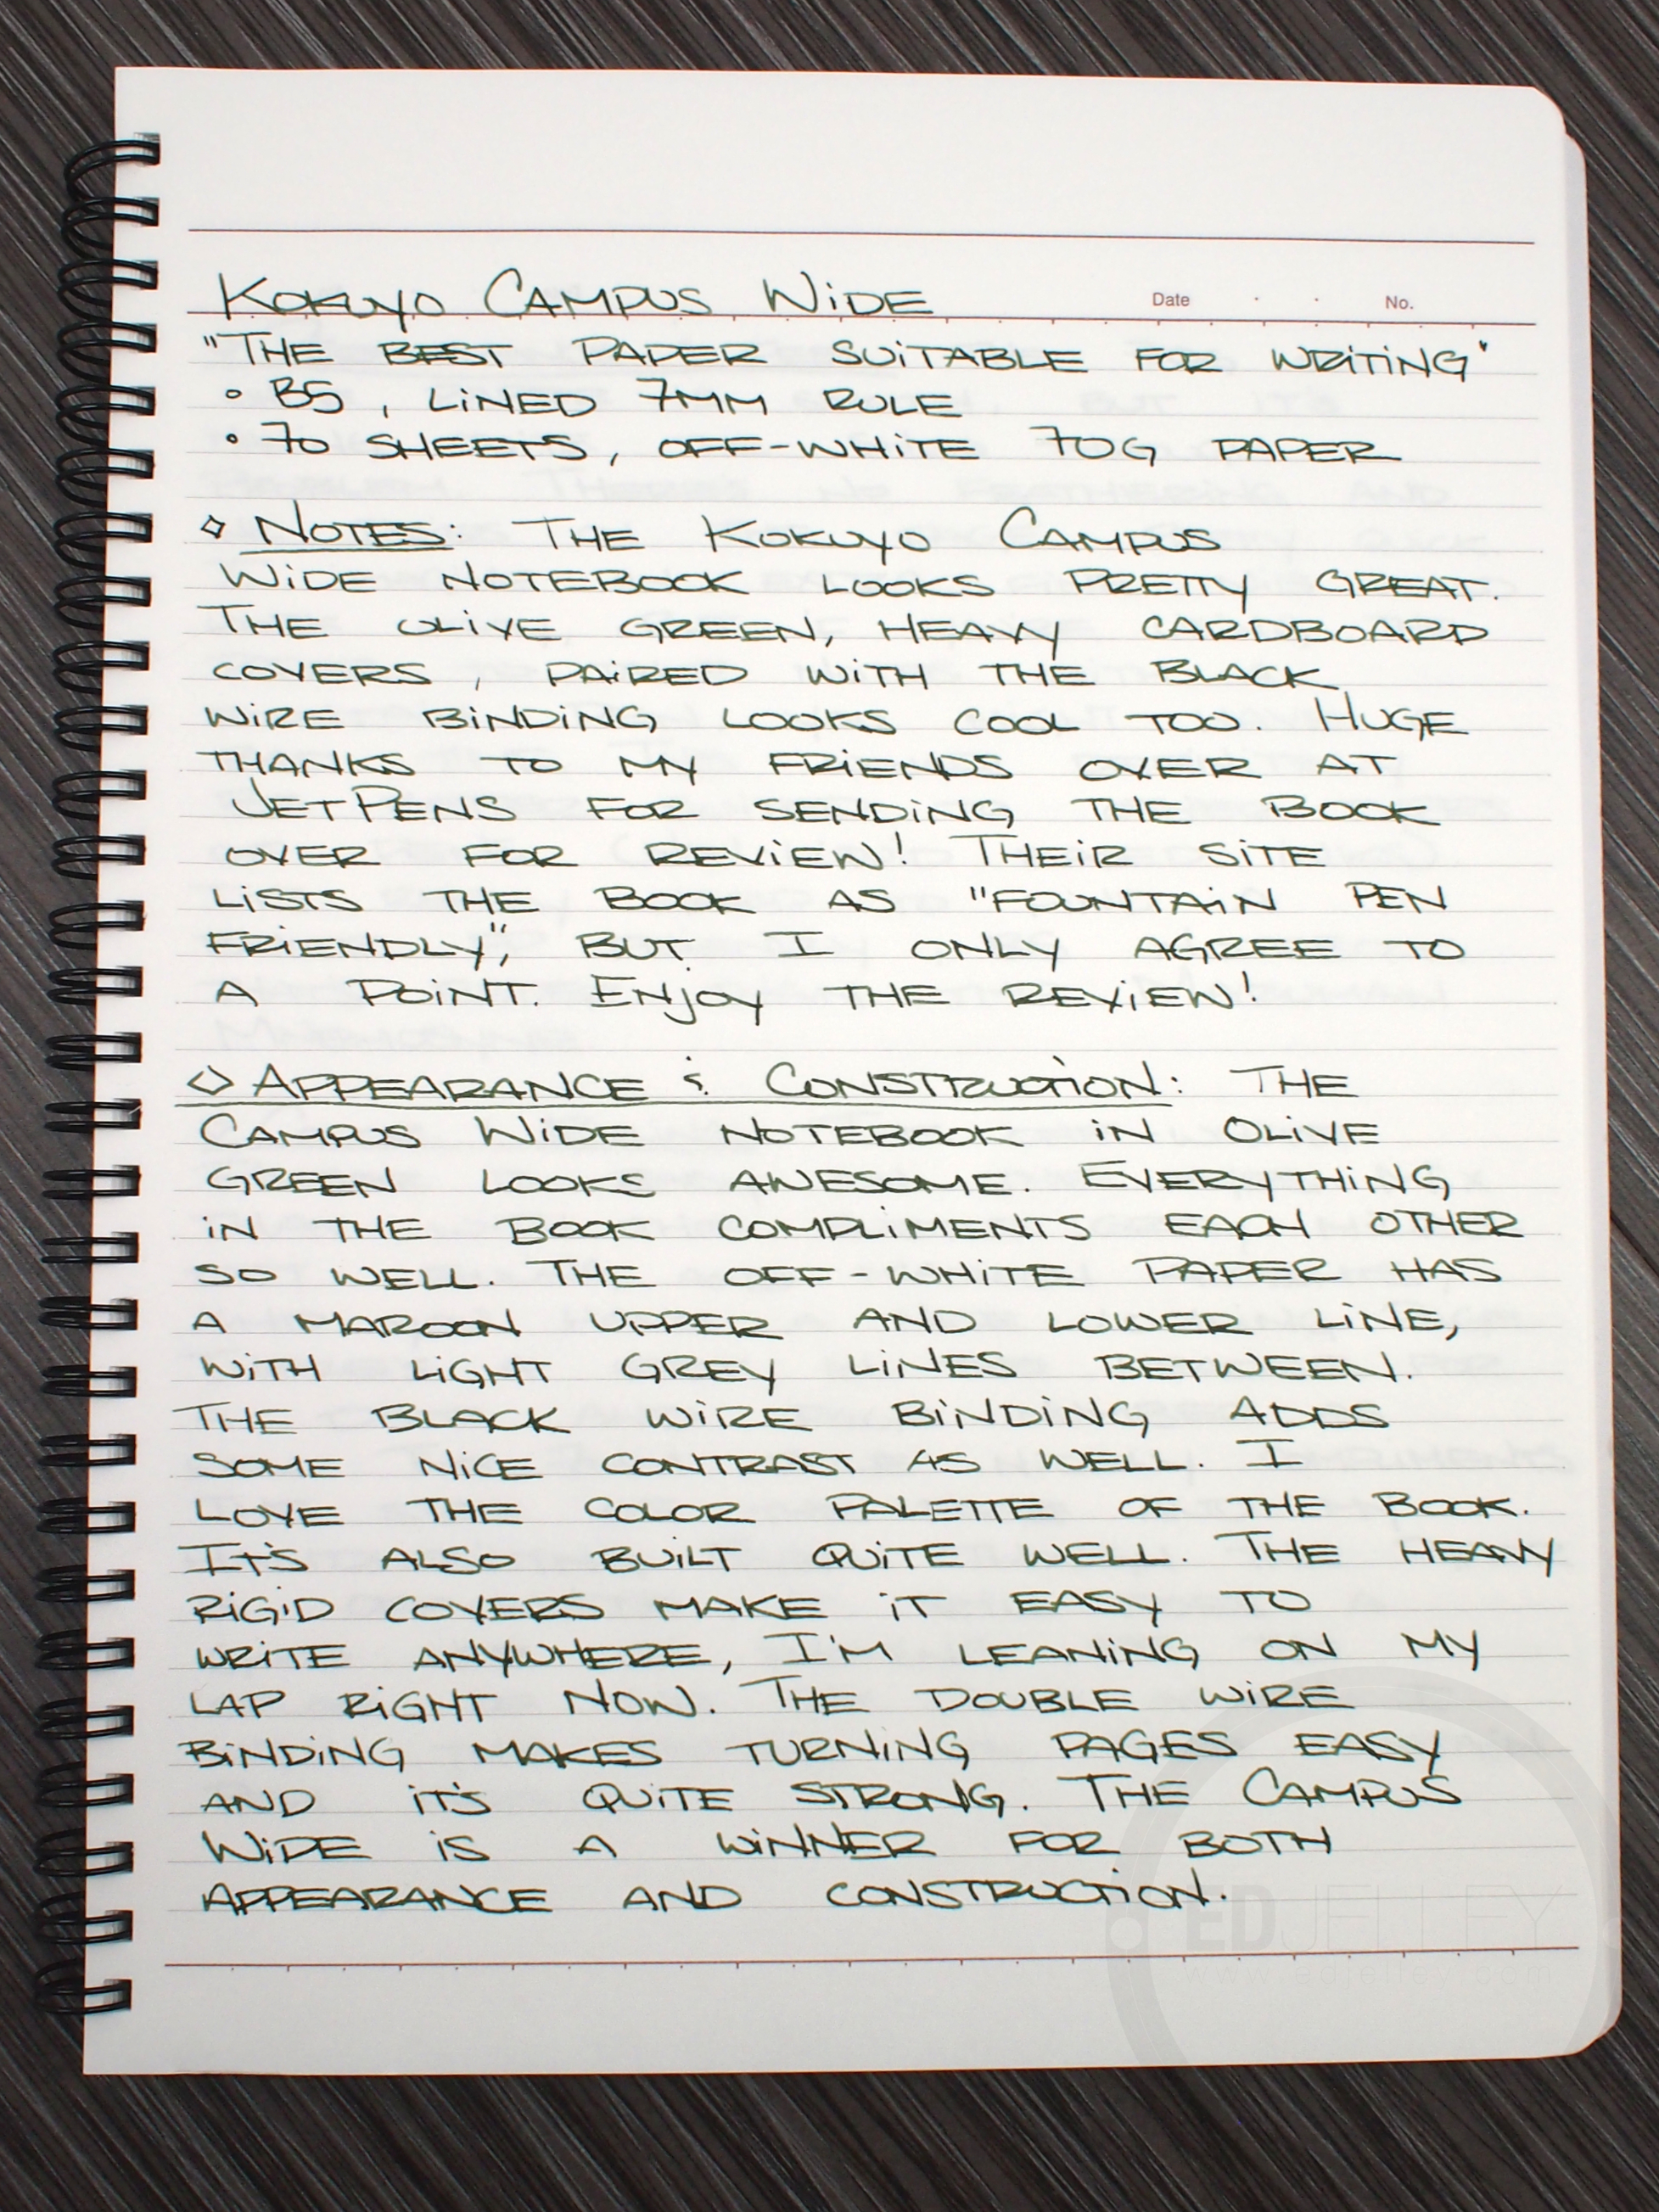 Kokuyo Campus Wide
Date . . No.
"The best paper suitable for writing"
• B5, lined 7mm rule
• 70 sheets, off-white 70g paper
◇ Notes: The Kokuyo Campus
Wide notebook looks pretty great.
The olive green, heavy cardboard
covers, paired with the black
wire binding looks cool too. Huge
thanks to my friends over at
JetPens for sending the book
over for review! Their site
lists the book as "fountain pen
friendly", but I only agree to
a point. Enjoy the review!
◇ Appearance & Construction: The
Campus Wide notebook in Olive
Green looks awesome. Everything
in the book compliments each other
so well. The off-white paper has
a maroon upper and lower line,
with light grey lines between.
The black wire binding adds
some nice contrast as well. I
love the color palette of the book.
It's also built quite well. The heavy
rigid covers make it easy to
write anywhere, I'm leaning on my
lap right now. The double wire
binding makes turning pages easy
and it's quite strong. The Campus
Wide is a winner for both
appearance and construction.
EDJELLEY
www.edjelley.com